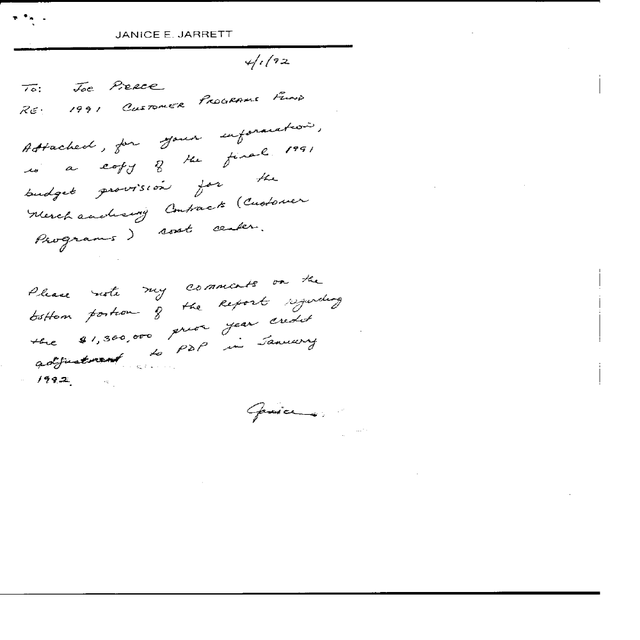 JANICE E. JARRETT
4/1/92
To: Joe Pierce
RE: 1991 Customer Programs Fund
Attached, for your information,
is a copy of the final 1991
budget provision for the
Merchandising Contracts (Customer
Programs) cost center.
Please note my comments on the
bottom portion of the report regarding
the $1,300,000 prior year credit
adjustment to PDP in January
1992.
Janice